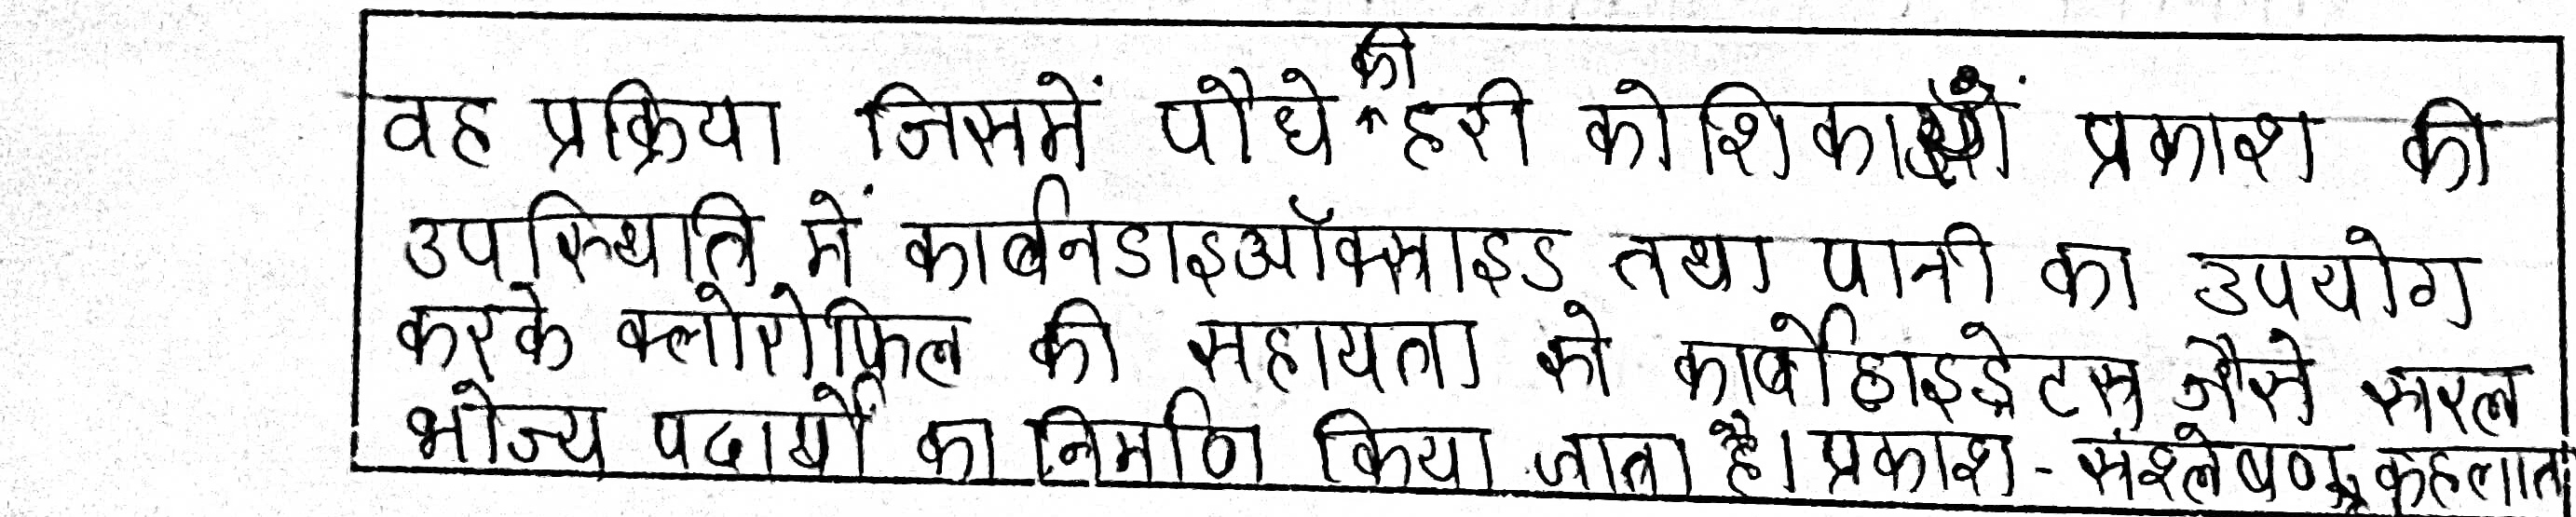 वह प्रक्रिया जिसमें पौधे की हरी कोशिकाओं प्रकाश की
उपस्थिति में कार्बनडाइऑक्साइड तथा पानी का उपयोग
करके क्लोरोफिल की सहायता से कार्बोहाइड्रेटस जैसे सरल
भोज्य पदार्थों का निर्माण किया जाता है। प्रकाश-संश्लेषण कहलाता